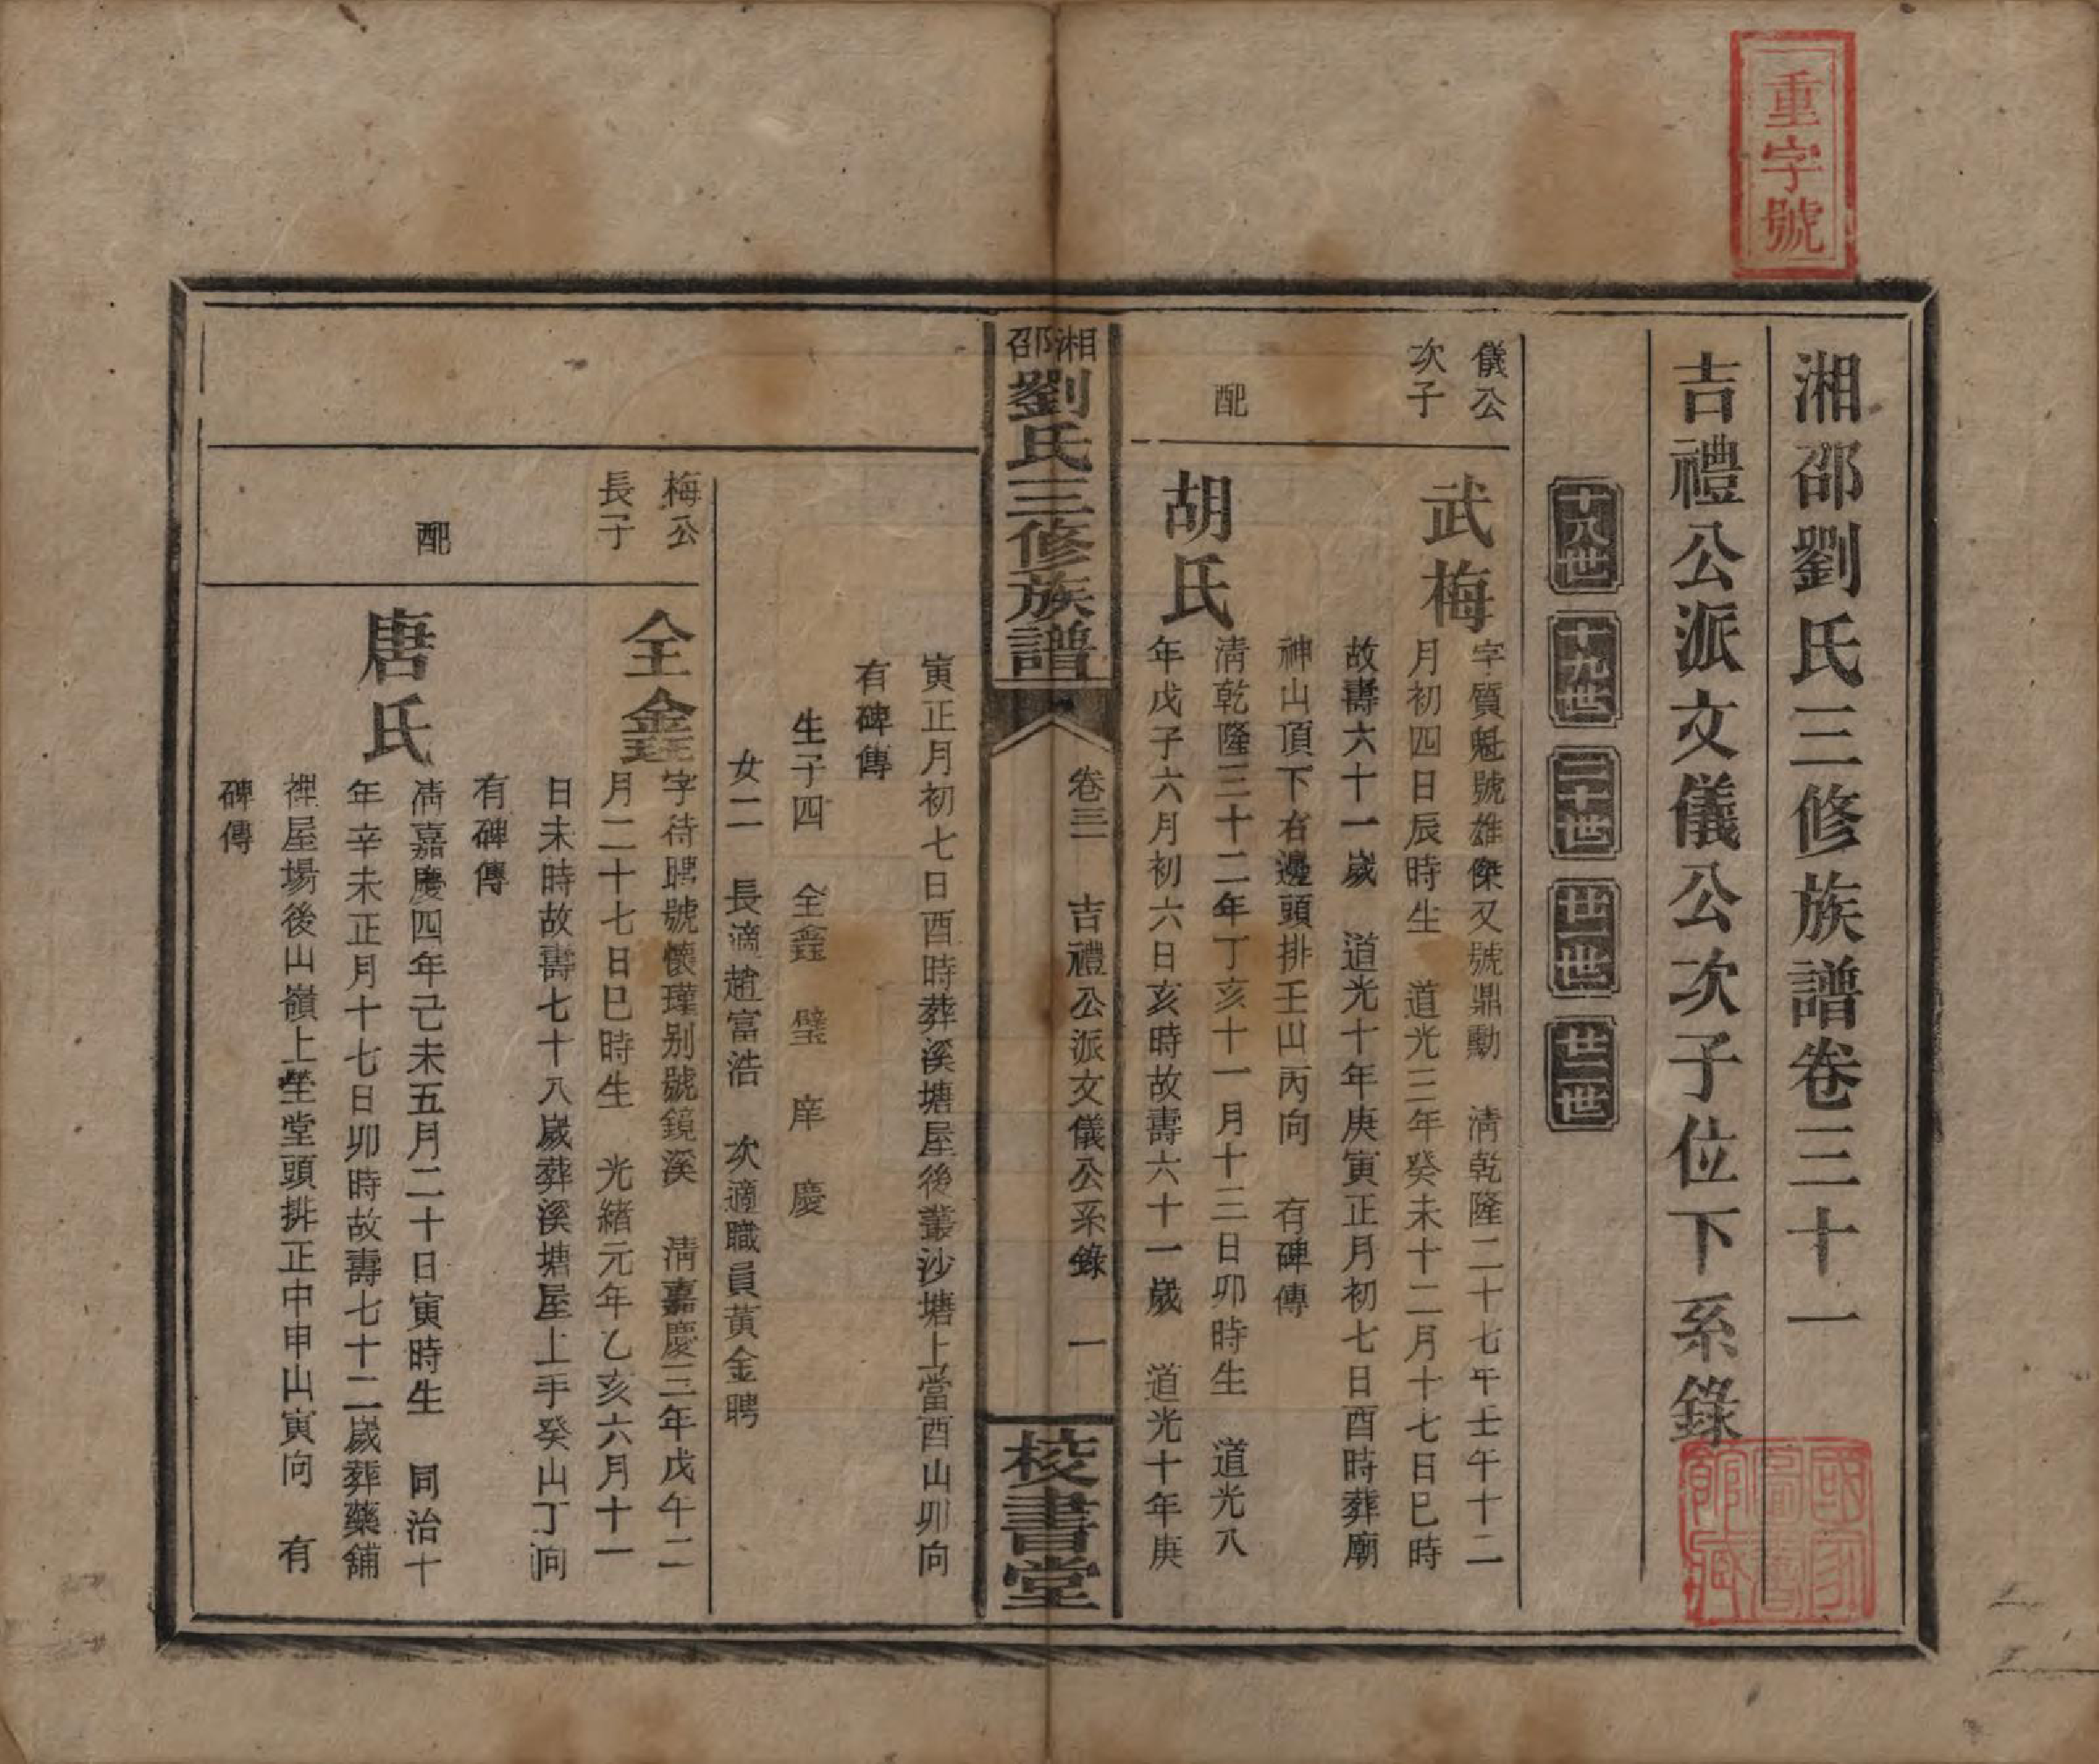 重字號
湘邵劉氏三修族譜卷三十一
吉禮公派文儀公次子位下系錄
十八世 十九世 二十世 廿一世 廿二世
儀公
次子
武梅
字質魁號雄傑又號鼎勳 清乾隆二十七年壬午十二
月初四日辰時生 道光三年癸未十二月十七日巳時
故壽六十一歲 道光十年庚寅正月初七日酉時葬廟
神山頂下右邊頭排壬山丙向 有碑傳
配
胡氏
清乾隆三十二年丁亥十一月十三日卯時生 道光八
年戊子六月初六日亥時故壽六十一歲 道光十年庚
湘邵劉氏三修族譜
卷三十一 吉禮公派文儀公系錄 一
校書堂
寅正月初七日酉時葬溪塘屋後叢沙塘上當酉山卯向
有碑傳
生子四 全鑫 璧 庠 慶
女二 長適趙富浩 次適職員黃金聘
梅公
長子
全鑫
字待聘號懷瑾别號鏡溪 清嘉慶三年戊午二
月二十七日巳時生 光緒元年乙亥六月十一
日未時故壽七十八歲葬溪塘屋上手癸山丁向
有碑傳
配
唐氏
清嘉慶四年己未五月二十日寅時生 同治十
年辛未正月十七日卯時故壽七十二歲葬藥舖
裡屋場後山嶺上塋堂頭排正中申山寅向 有
碑傳
國家圖書館藏